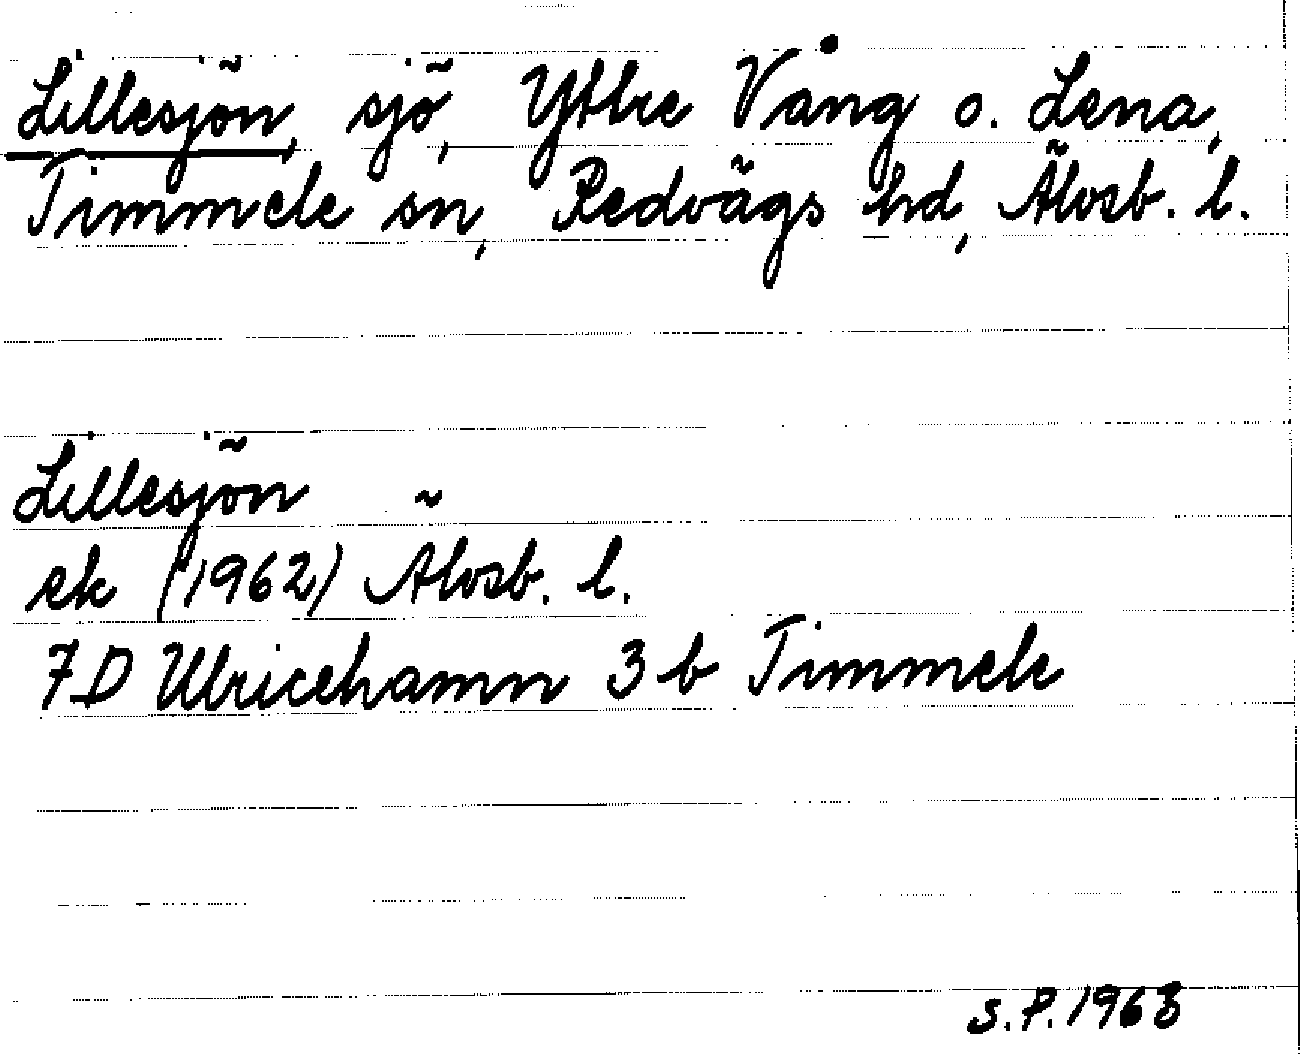 Lillesjön, sjö, Yttre Vång o. Lena,
Timmele sn, Redvägs hd, Älvsb. l.
Lillesjön
ek (1962) Älvsb. l.
7D Ulricehamn 3 b Timmele
S.P. 1963